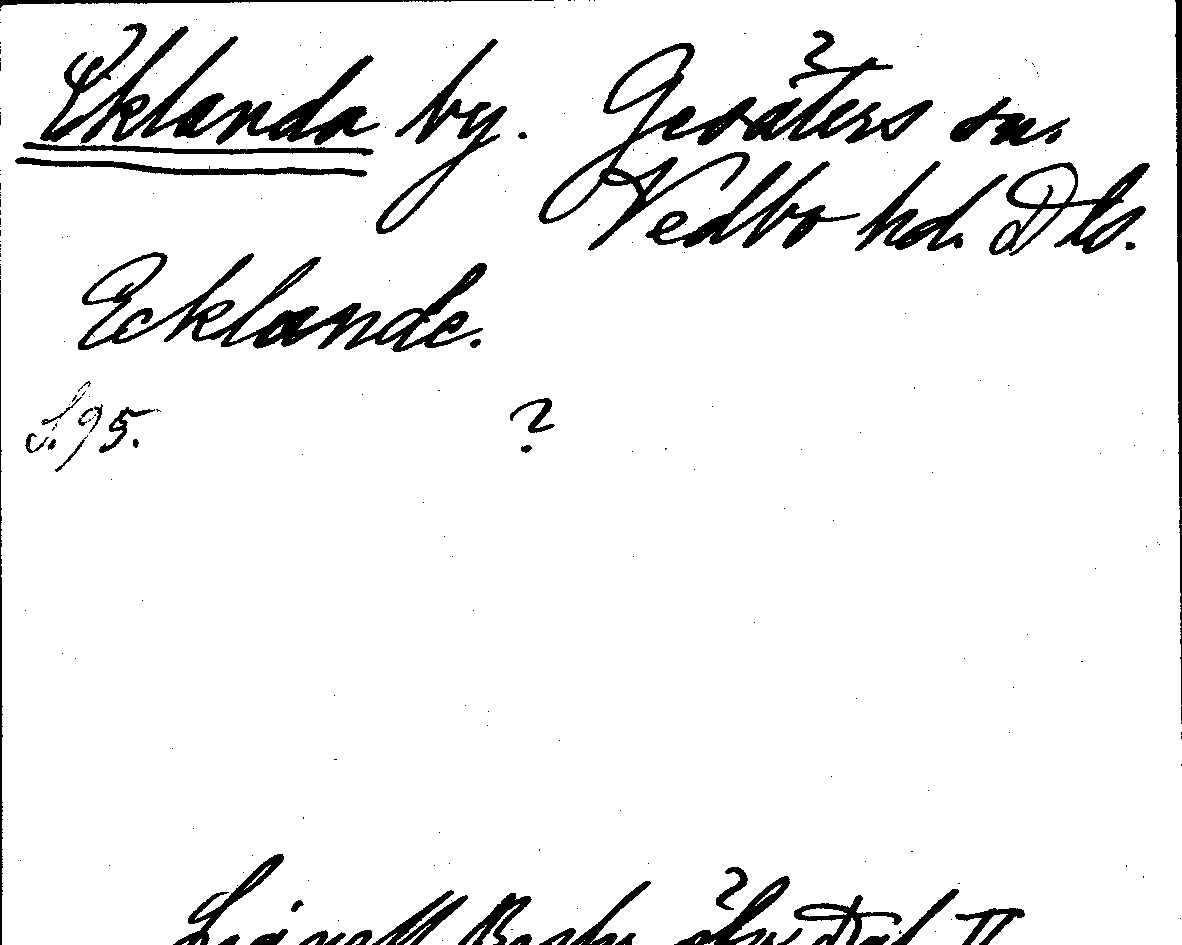 Eklanda by. Gesäters sn.
Vedbo hd. Dls.
Ecklande.
S. 95. ?
Lignell Beskr. öfv. Dal II